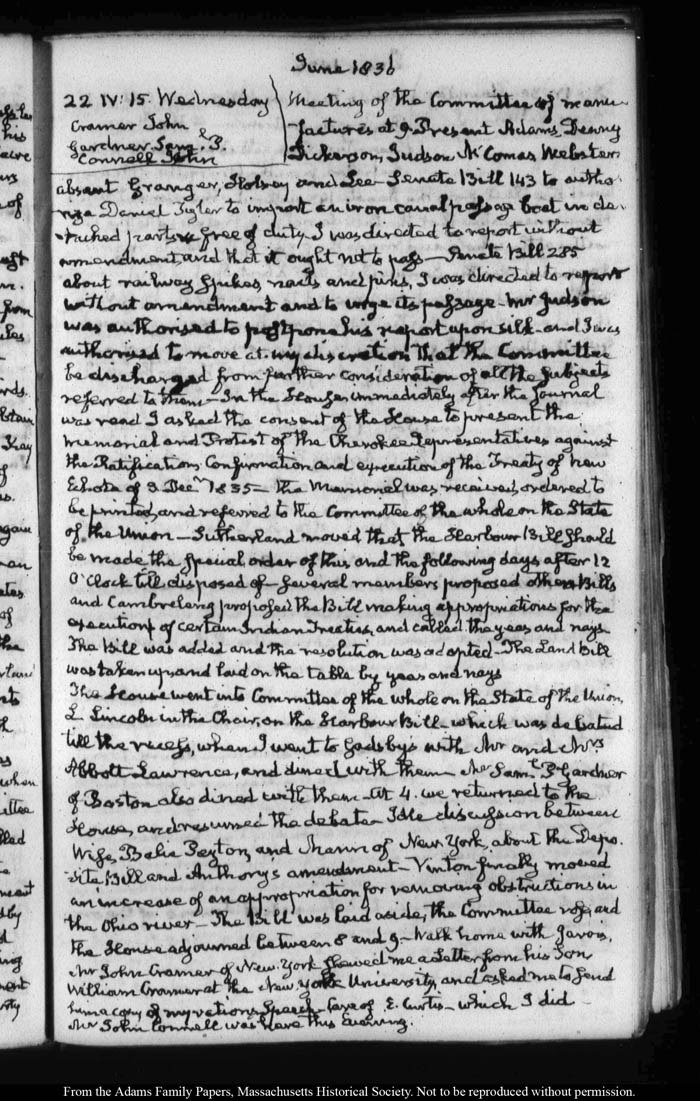 June 1836
22 IV: 15. Wednesday
Cramer John
Gardner Sam. P.
Connell John
Meeting of the Committee of manu-
-factures at 9. Present Adams, Denny
Dickerson, Judson, McComas, Webster
absent Granger, Holsey and Lee. Senate Bill 143 to autho-
rize Daniel Tyler to import an iron canal passage boat in de-
-tached parts free of duty. I was directed to report without
amendment, and that it ought not to pass — Senate Bill 285
about railway spikes, nails and pins, I was directed to report
without amendment and to urge its passage — Mr Judson
was authorised to postpone his report upon silk — and I was
authorised to move at my discretion that the Committee
be discharged from further consideration of all the subjects
referred to them — In the House, immediately after the Journal
was read I asked the consent of the House to present the
Memorial and Protest of the Cherokee Representatives against
the Ratification, Confirmation and execution of the Treaty of New
Echota of Decr 1835 — the Memorial was received, ordered to
be printed, and referred to the Committee of the whole on the State
of the Union — Sutherland moved that the Harbour Bill should
be made the special order of this and the following days after 12
O'Clock till disposed of — Several members proposed other Bills
and Cambreleng proposed the Bill making appropriations for the
execution of certain Indian Treaties, and called the yeas and nays
The Bill was added and the resolution was adopted — The Land Bill
was taken up and laid on the table by yeas and nays
The House went into Committee of the whole on the State of the Union,
L. Lincoln in the Chair, on the Harbour Bill — which was debated
till the recess, when I went to Gadsby's with Mr and Mrs
Abbott Lawrence, and dined with them — Mr Saml P Gardner
of Boston also dined with them — At 4. we returned to the
House, and resumed the debate — Idle discussion between
Wise, Balie Peyton, and Mann of New York, about the Depo-
-site Bill and Anthony's amendment — Vinton finally moved
an increase of an appropriation for removing obstructions in
the Ohio river — The Bill was laid aside, the Committee rose, and
the House adjourned between 8 and 9 — Walk home with Jarvis,
Mr John Cramer of New York shewed me a Letter from his Son
William Cramer at the New York University, and asked me to send
him a copy of my rations Speech — Care of E. Curtis — which I did —
Mr John Connell was here this Evening.
From the Adams Family Papers, Massachusetts Historical Society. Not to be reproduced without permission.